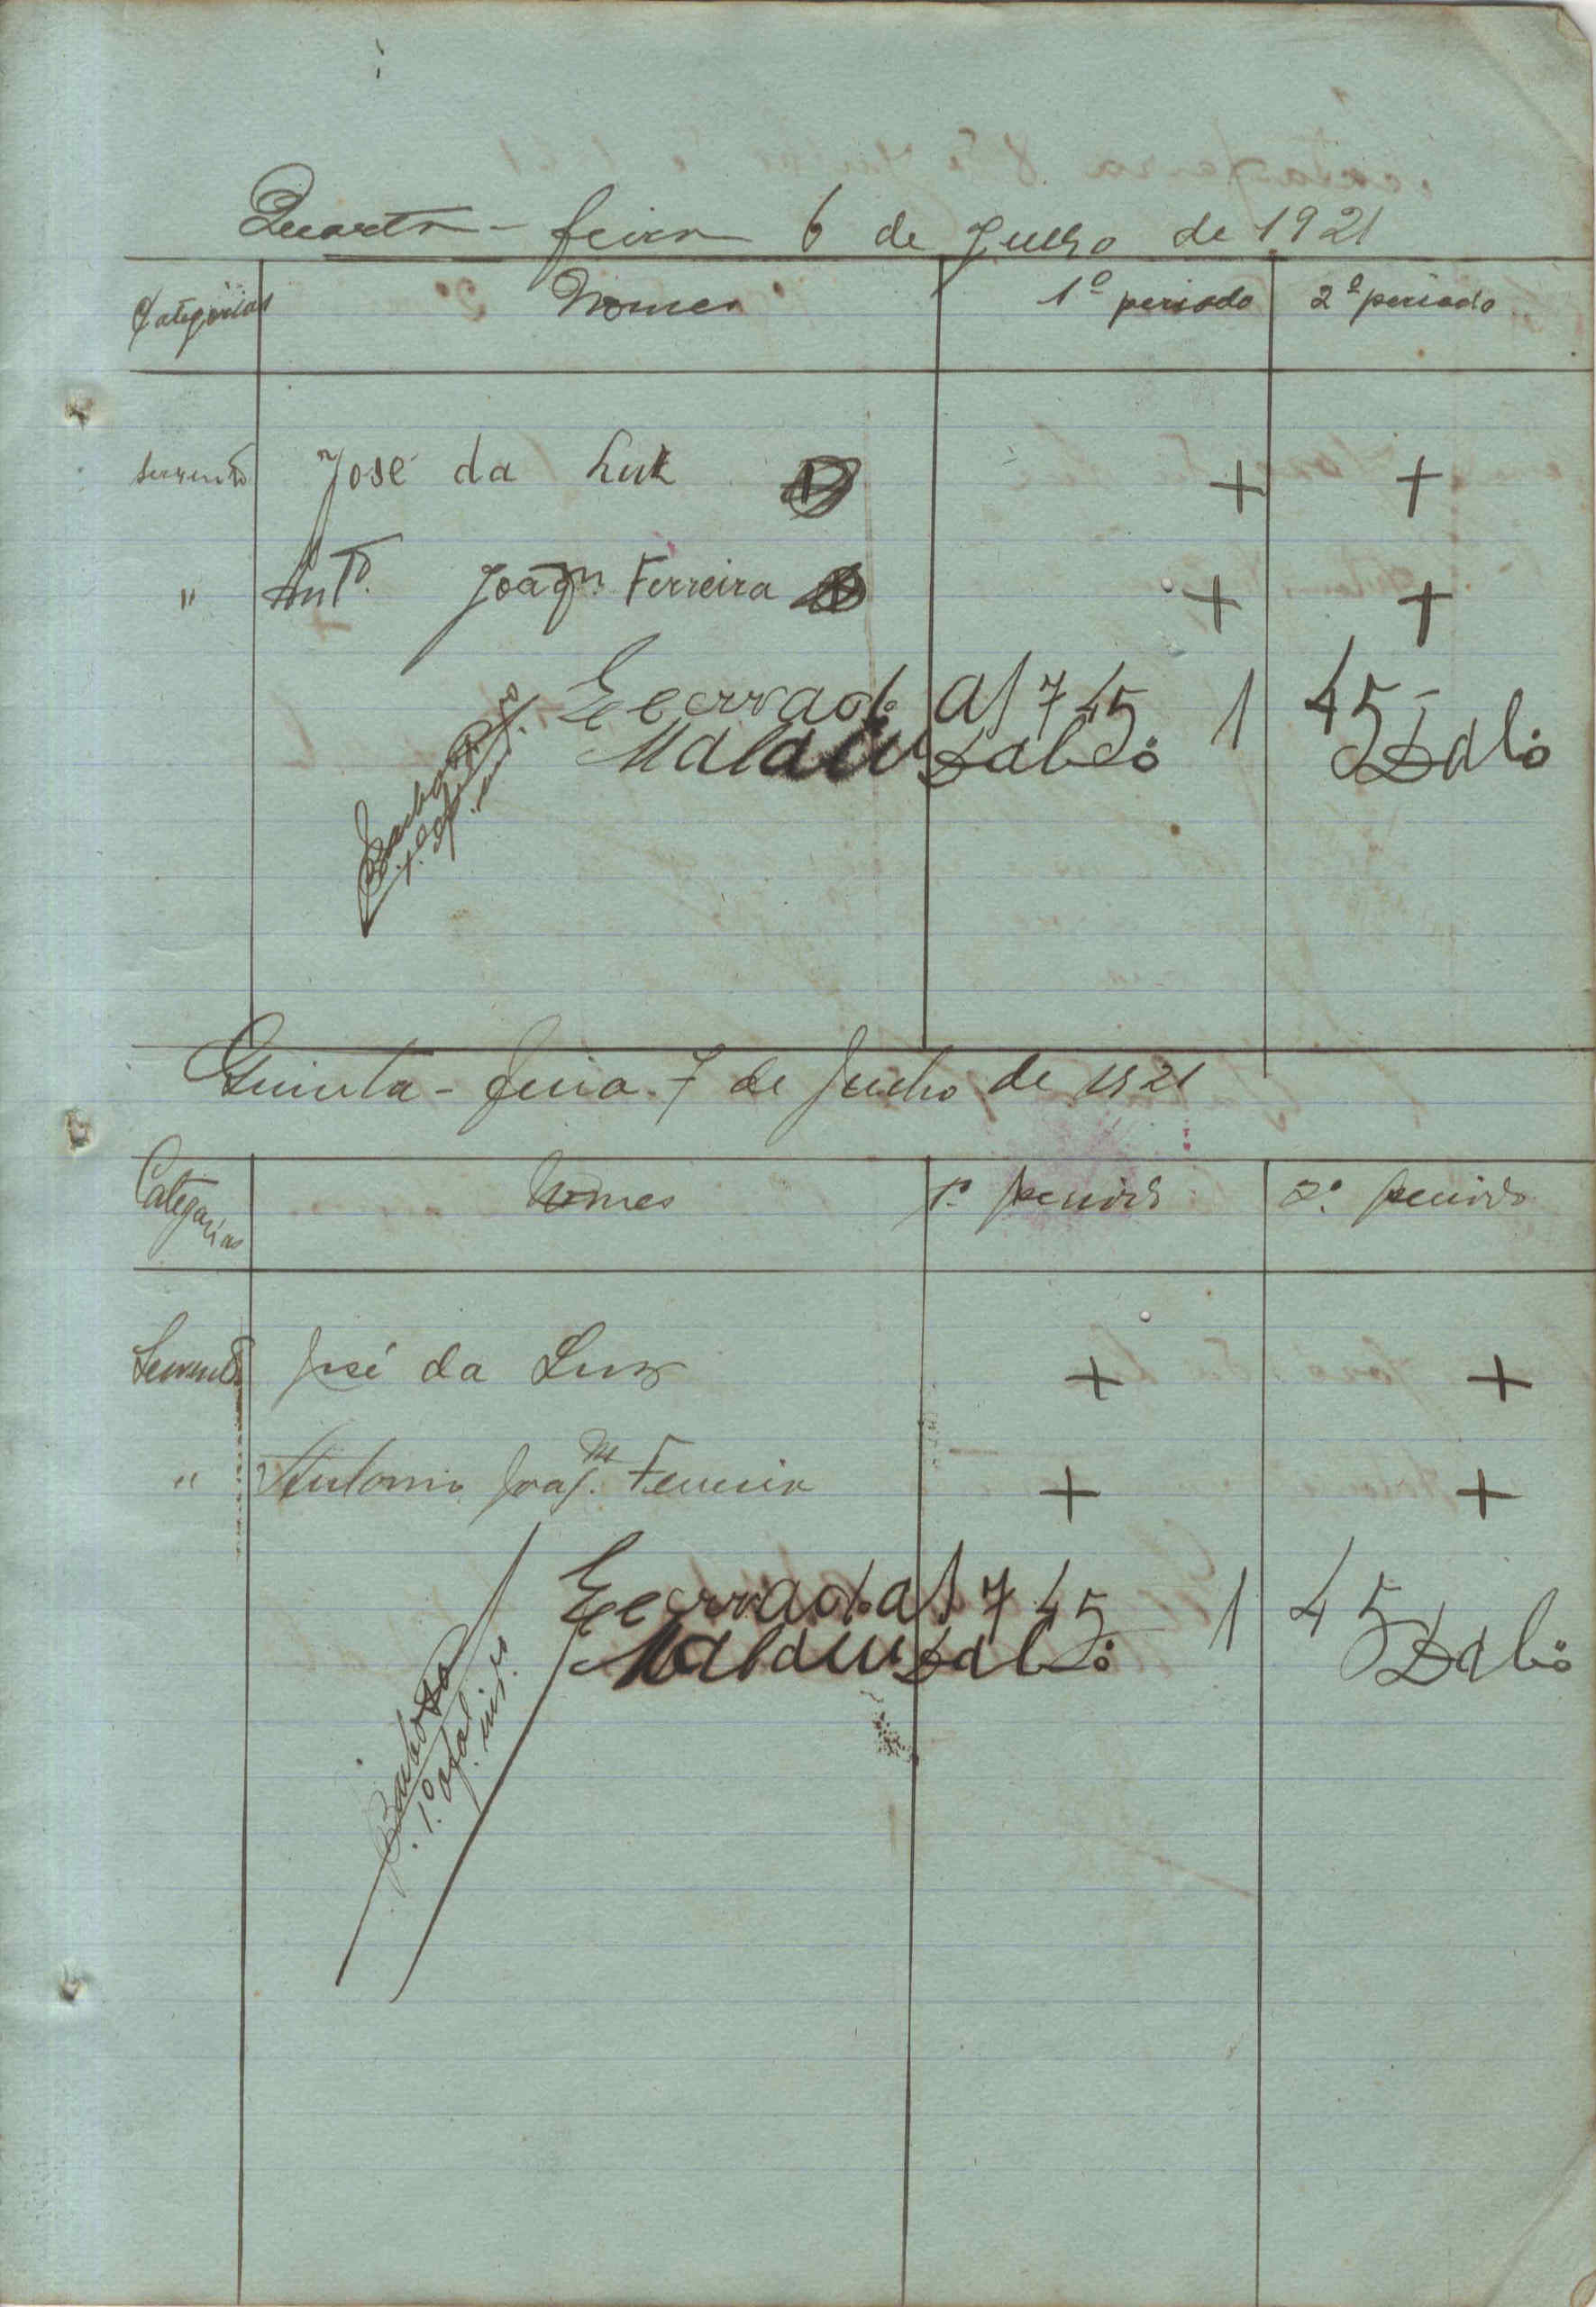 Quarta-feira 6 de Julho de 1921
Categorias Nomes 1º periodo 2º periodo
Servente José da Luz + +
" Antº. Joaqm. Ferreira + +
Ecerrado as 7 45 1 45
Malam Dabó Dabó
Barbosa
Quinta-feira 7 de Julho de 1921
Categorias Nomes 1º periodo 2º periodo
Servente José da Luz + +
" Antonio Joaqm. Ferreira + +
Ecerrado as 7 45 1 45
Malam Dabó Dabó
Barbosa
1º. ofal.